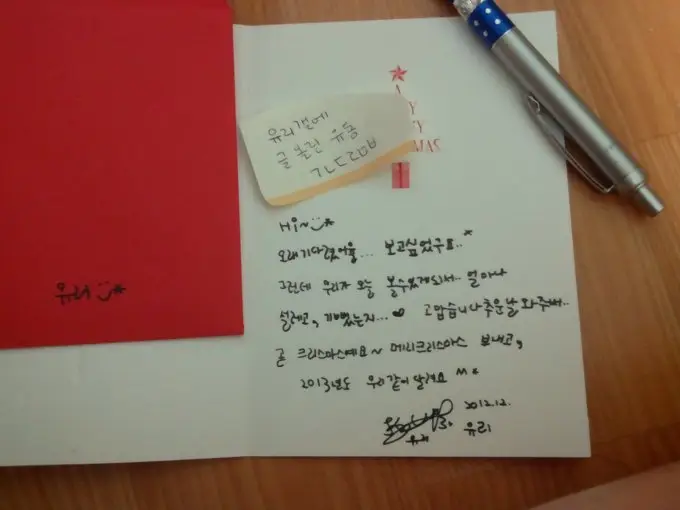 유리갤에
글 올린 유동
ㄱㄴㄷㄹㅁㅂ
Hi~
오래기다렸어용... 보고싶었구요..
그런데 우리가 오늘 볼수있게되서.. 얼마나
설레고, 기뻤는지...♥ 고맙습니다 추운날 와주셔..
곧 크리스마스예요~ 메리크리스마스 보내고,
2013년도 우리같이 달려요
2012.12.
유리
유리